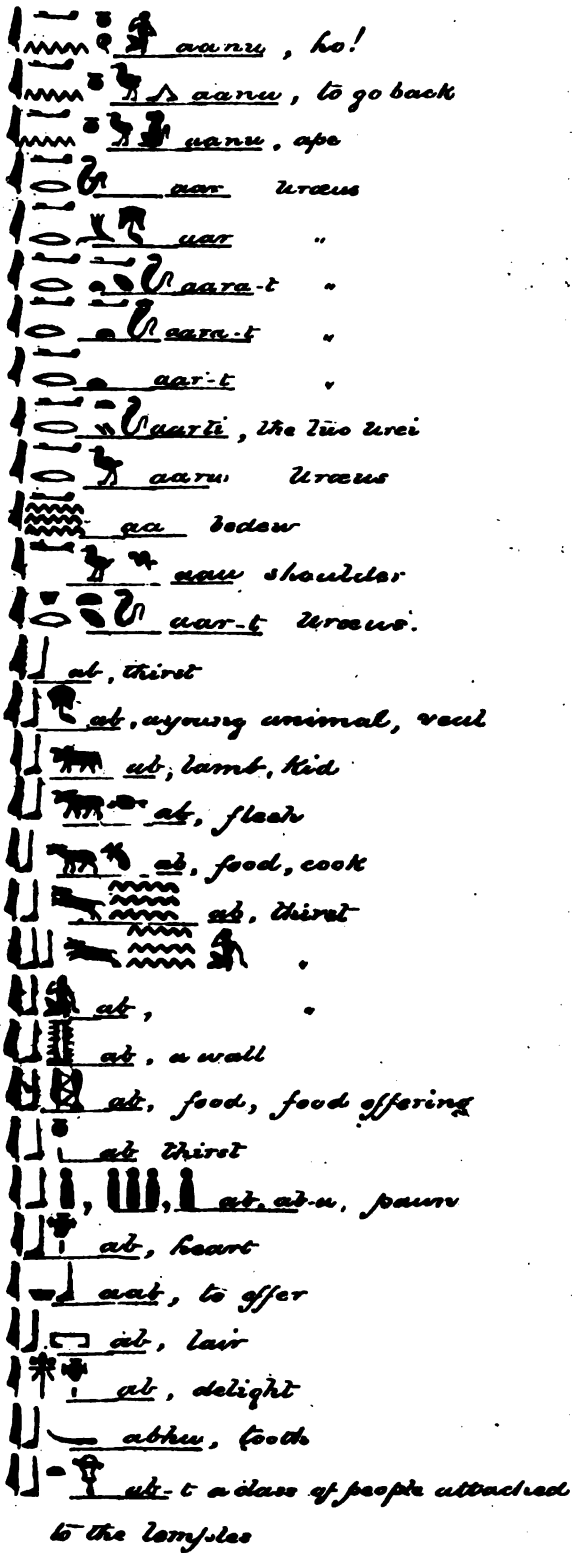 aanu, ho!
aanu, to go back
aanu, ape
aar uræus
aar "
aara-t "
aara-t "
aar-t "
aarti, the two urei
aaru uræus
aa bedew
aau shoulder
aar-t uræus.
ab, thirst
ab, a young animal, veal
ab, lamb, kid
ab, flesh
ab, food, cook
ab, thirst
"
ab, "
ab, a wall
ab, food, food offering
ab thirst
ab, ab-u, pawn
ab, heart
aab, to offer
ab, lair
ab, delight
abhu, tooth
ab-t a class of people attached
to the temples